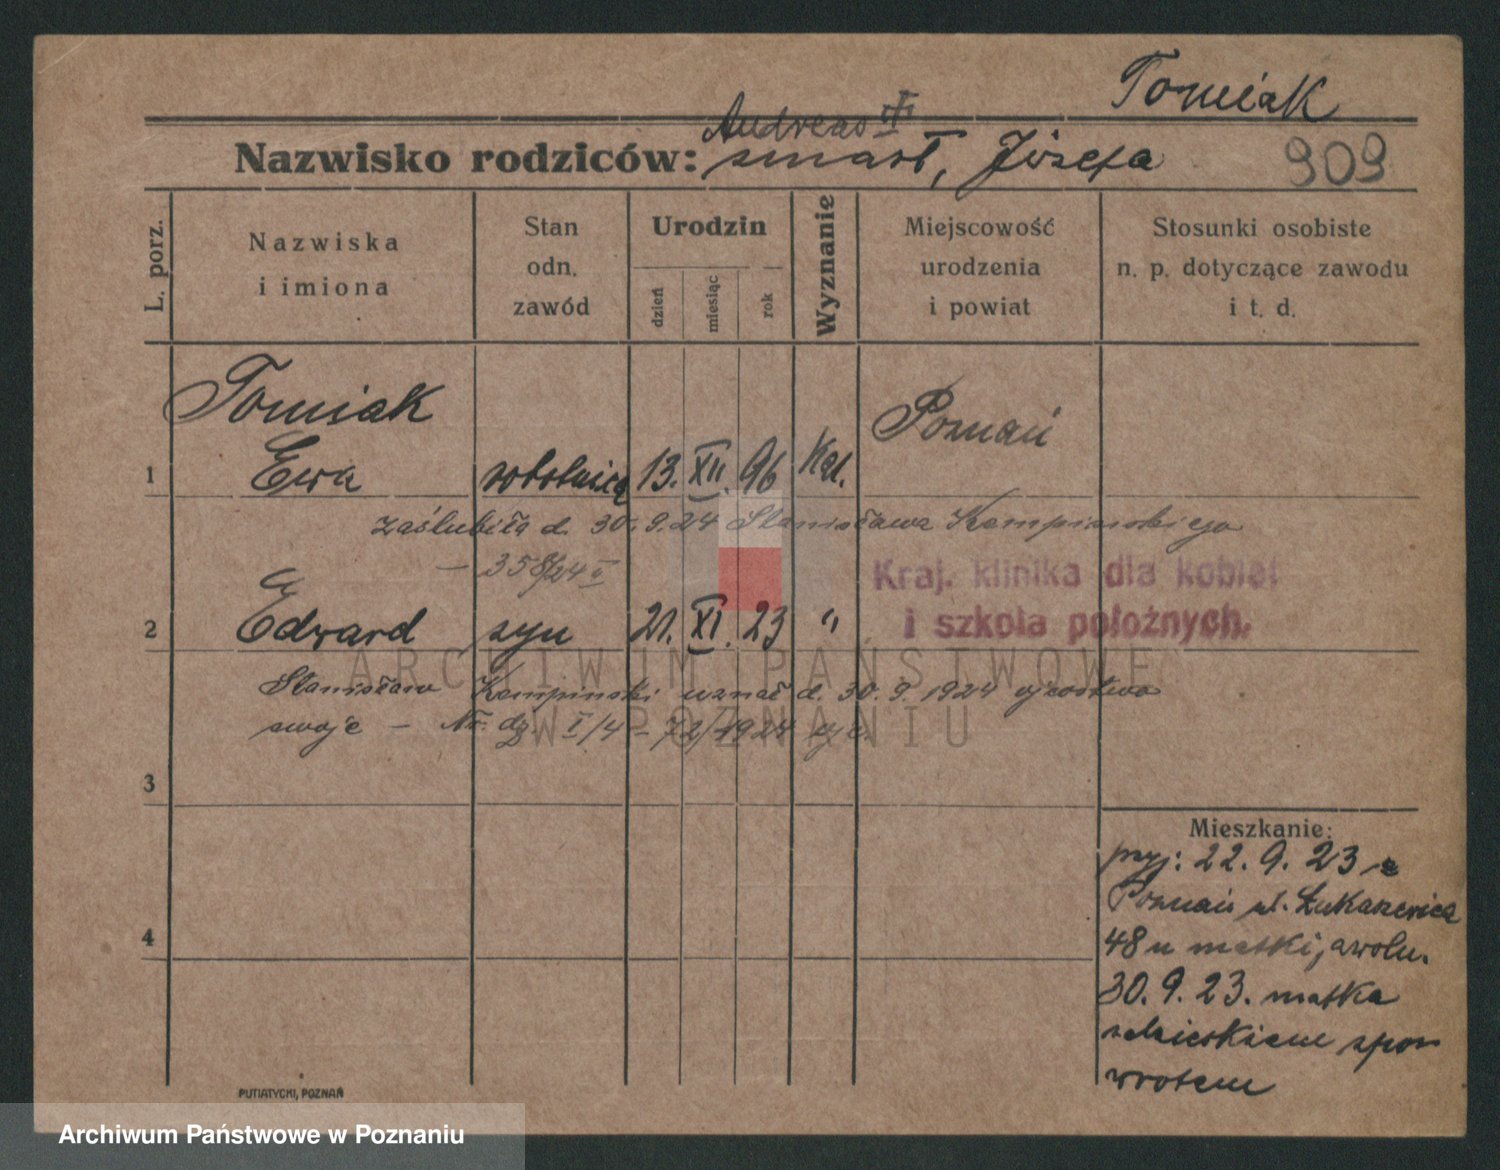 Tomiak
Andreas III
Nazwisko rodziców: zmarł, Józefa 909
L. porz.
Nazwiska
i imiona
Stan
odn.
zawód
Urodzin
dzień
miesiąc
rok
Wyznanie
Miejscowość
urodzenia
i powiat
Stosunki osobiste
n. p. dotyczące zawodu
i t. d.
Tomiak
1 Ewa robotnica 13. XII. 96 Kat. Poznań
zaślubiła d. 30. 9. 24 Stanisława Kempińskiego
— 358/24
Kraj. klinika dla kobiet
i szkoła położnych.
2 Edward syn 21. XI. 23 "
ARCHIWUM PAŃSTWOWE
Stanisław Kempiński uznał d. 30. 9. 1924 ojcostwo
W POZNANIU
swoje — Nr. dz. I/4 - 72/1924
3
4
Mieszkanie:
przj: 22. 9. 23 z
Poznań ul. Łukaszewicza
48 u matki,
30. 9. 23. matka
z dzieckiem zpo-
wrotem
PUTIATYCKI, POZNAŃ
Archiwum Państwowe w Poznaniu